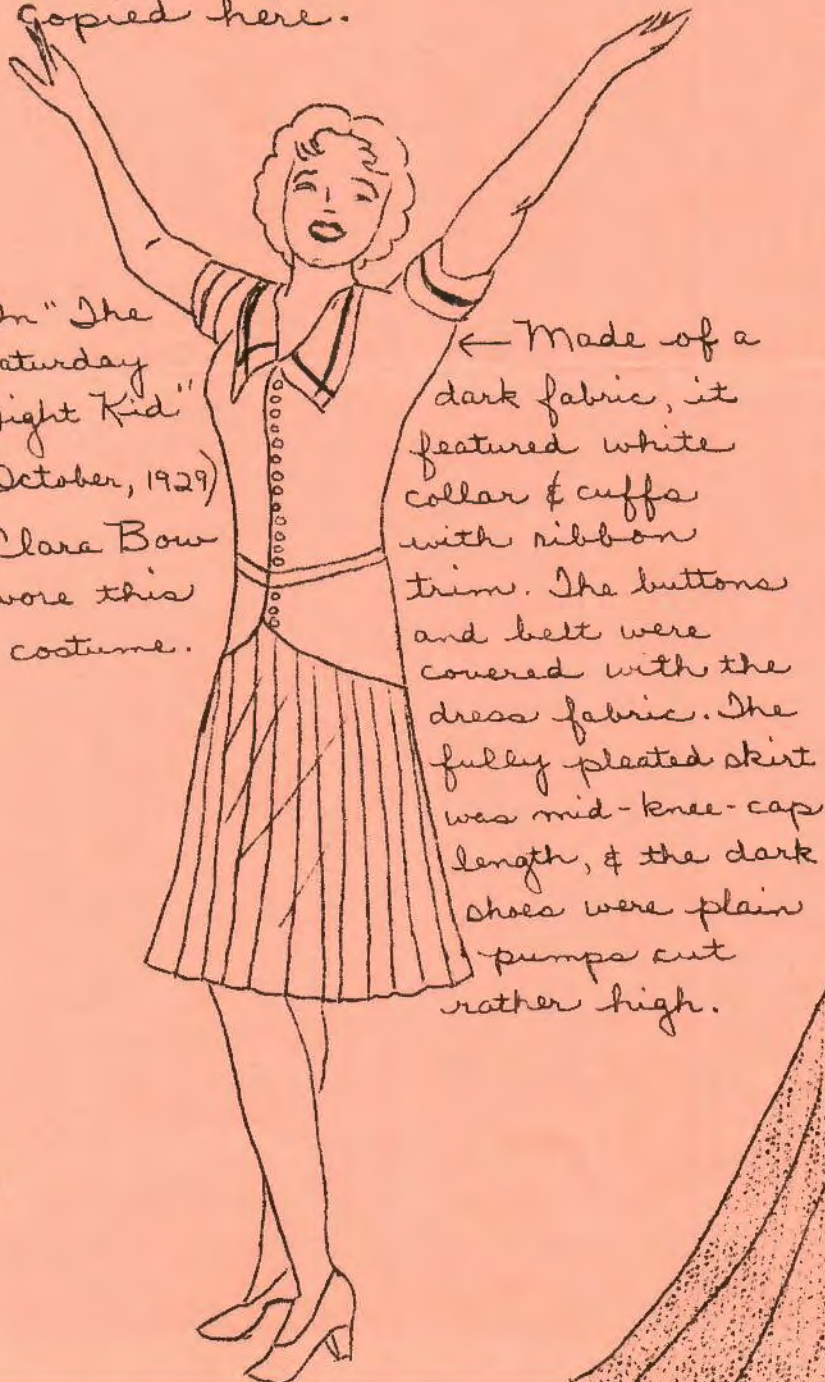 copied here.
In "The
aturday
ight Kid"
October, 1929)
Clara Bow
wore this
costume.
← Made of a
dark fabric, it
featured white
collar & cuffs
with ribbon
trim. The buttons
and belt were
covered with the
dress fabric. The
fully pleated skirt
was mid-knee-cap
length, & the dark
shoes were plain
pumps cut
rather high.